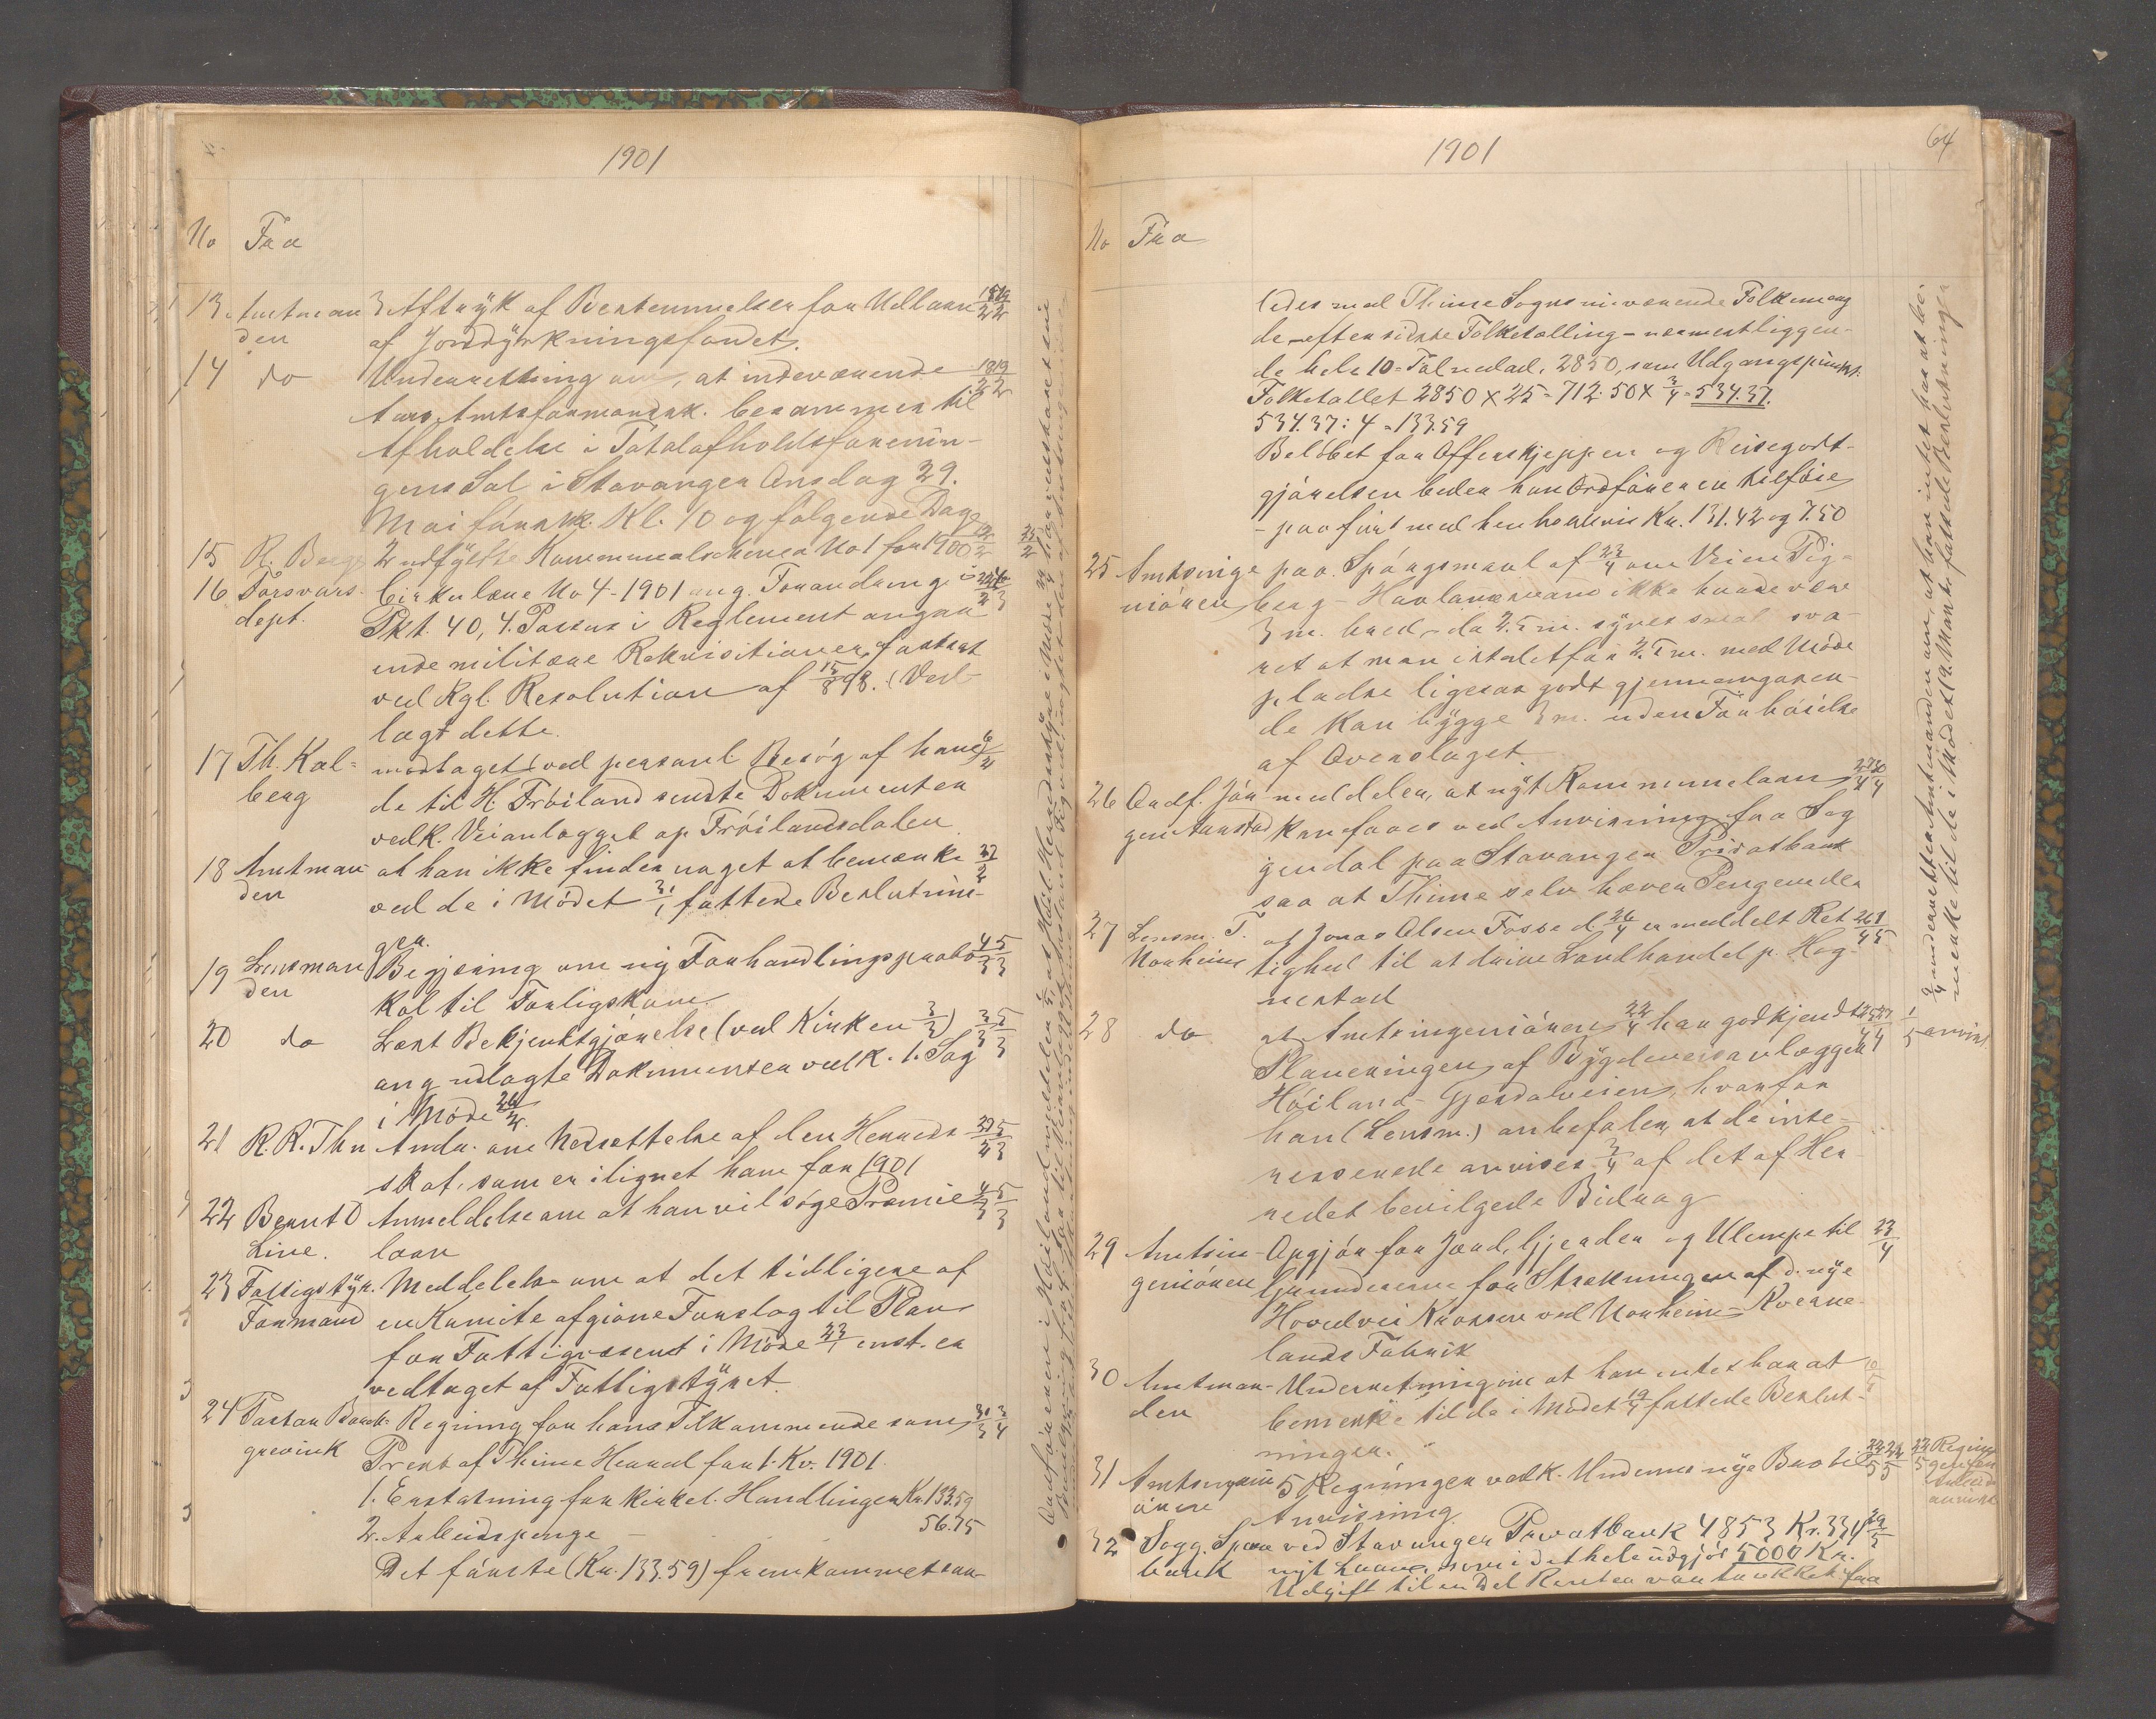 1901
No Fra
13 Amtman 3 Aftryk af Bestemmelser for Udlaan 15/2 19/2
den af Jorddyrkningsfondet.
14 do Underretning om, at indeværende 18/2 19/2
Aars Amtsformandsk. berammes til
Afholdelse i Totalafholdsforenin-
gens Sal i Stavanger Onsdag 29.
Mai førstk. Kl. 10 og følgende Dage
15 R. Berge 2 udfyldte Kommunalskema No 1 for 1900
16 Forsvars- Cirkulære No 4-1901 ang. Forandring i
dept. Pkt. 40, 4. Passus i Reglement angaa
ende militære Rekvisitioner, fastsat
ved Kgl. Resolution af 15/8 98. (Ved-
lagt dette.
17 Th. Kal= modtaget (ved personl. Besøg af ham)
berg de til H. Frøiland sendte Dokumenter
vedk. Veianlægget op Frøilandsdalen
18 Amtman at han ikke finder noget at bemærke
den ved de i Mødet 31/1 fattede Beslutnin-
ger.
19 Lensman Begjæring om ny Forhandlingsproto 4/3 5/3
den kol til Forligskom.
20 do Læst Bekjentgjørelse (ved Kirken 3/3) 3/3 5/3
ang udlagte Dokumenter vedk. 1. Sag
i Møde
21 R. R. Thu Andr. om Nedsættelse af den Herreds
skat, som er ilignet ham for 1901
22 Bernt O Anmeldelse om at han vil søge Præmie 4/3 5/3
Line. laan
23 Fattigstyr. Meddelelse om at det tidligere af
Formand en Komite afgivne Forslag til Plan
for Fattigvæsenet i Møde enst. er
vedtaget af Fattigstyret.
24 Pastor Bonne- Regning for hans Tilkommende som 31/3 3/4
grevink Prest af Thime Herred for 1. Kv. 1901.
1. Erstatning for kirkel. Handlinger Kr. 133.59
2. Arbeidspenge – 56.75
Det første (Kr. 133.59) fremkommet saa-
1901
64
No Fra
ledes med Thime Sogns nuværende Folkemæng
de efter sidste Folketælling – nærmestliggen-
de hele 10-Tal nedad, 2850, som Udgangspunkt:
Folketallet 2850 × 25 = 712.50 × 3/4 = 534.37.
534.37 : 4 = 133.59
Beløbet for Offerskjeppen og Reisegodt-
gjørelsen beder han Ordføreren tilføie
– paaført med henholdsvis Kr. 131.42 og 7.50
25 Amtsinge paa Spørgsmaal af 23/4 om Veien Tig-
niøren berg – Havlandsmarn ikke burde være
3 m. bred, da 2.5 m. synes smal sva-
ret at man istedetfor 2.5 m. med Møde
pladse ligesaa godt gjennemgaaen-
de kan bygge 3 m. uden Forhøielse
af Overslaget.
26 Ordf. Jør meddeler, at nyt Kommunelaan
gen Aanestad kan faaes ved Anvisning fra Sog
gendal paa Stavanger Privatbank
saa at Thime selv hæver Pengene der
27 Lensm. T. at Jonas Olsen Fosse d. 26/4 er meddelt Ret
Norheim tighed til at drive Landhandel p. Høg-
nestad
28 do at Amtsingeniøren 22/4 har godkjendt 1/5 anvist
Planeringen af Bygdeveisanlægget
Høiland – Gjesdalveien, hvorfor
han (Lensm.) anbefaler, at de inte-
resserede anvises 3/4 af det af Her-
redet bevilgede Bidrag
29 Amtsin- Opgjør for Jord, Gjerder og Ulempe til 23/4
geniøren Grundeierne for Strækningen af d. nye
Hovedvei Krossen ved Norheim – Kverne-
lands Fabrik
30 Amtman- Underretning om at han intet har at
den bemerke til de i Mødet 19/4 fattede Beslut-
ninger.
31 Amtsingeni 5 Regninger vedk. Undernes nye Bro til
øren Anvisning.
32 Sogg. Spare ved Stavanger Privatbank 4853 Kr. 33 Ø 29/5
bank nyt Laan, som i det hele udgjør 5000 Kr.
Udgift til en Del Renter var trukket fra